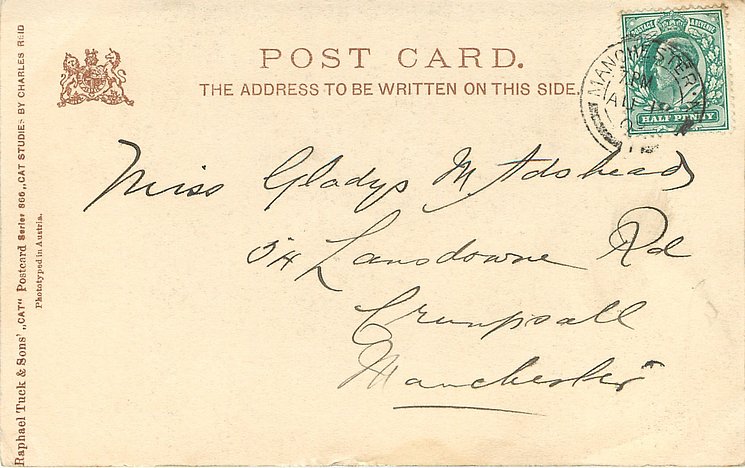 POST CARD.
THE ADDRESS TO BE WRITTEN ON THIS SIDE.
POSTAGE & REVENUE
HALF PENNY
MANCHESTER
7 PM
Miss Gladys M. Adshead
54 Lansdowne Rd
Crumpsall
Manchester
Raphael Tuck & Sons' „CAT" Postcard Series 866 „CAT STUDIES BY CHARLES REID
Phototyped in Austria.